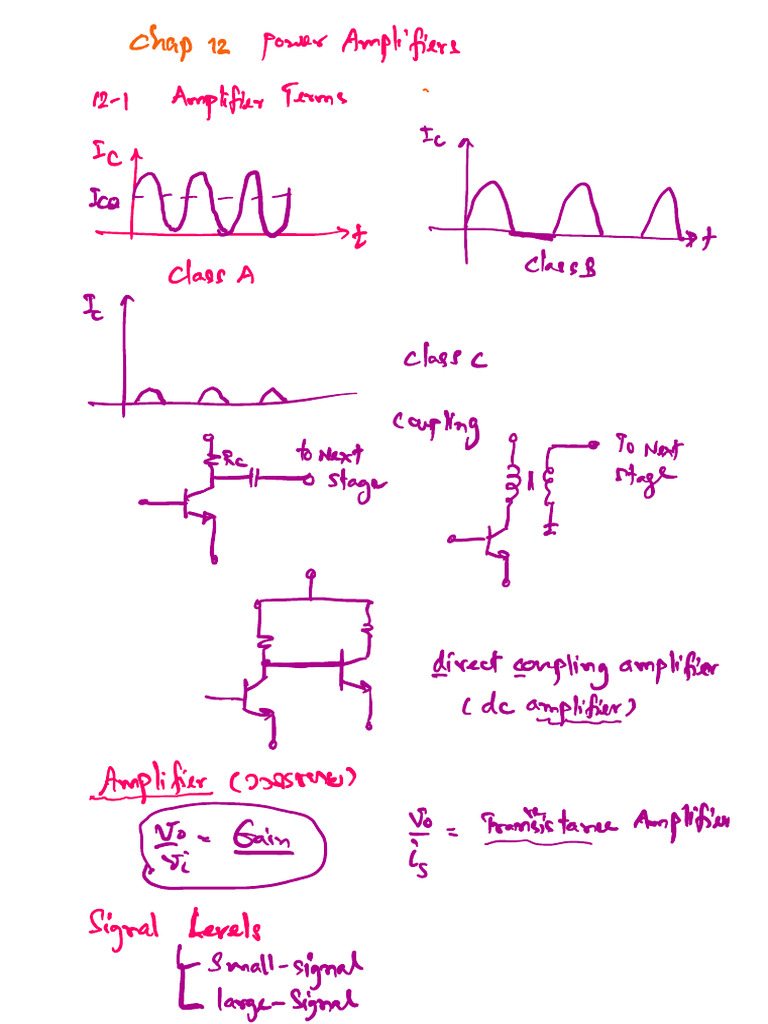 Chap 12 Power Amplifiers
12-1 Amplifier Terms
Ic
ICQ
t
Class A
Ic
t
Class B
Ic
Class C
Coupling
Rc
to Next
stage
To Next
stage
direct coupling amplifier
(dc amplifier)
Amplifier (วงจรขยาย)
Vo/Vi = Gain
Vo/is = Amplifier
Signal Levels
Small-signal
large-Signal